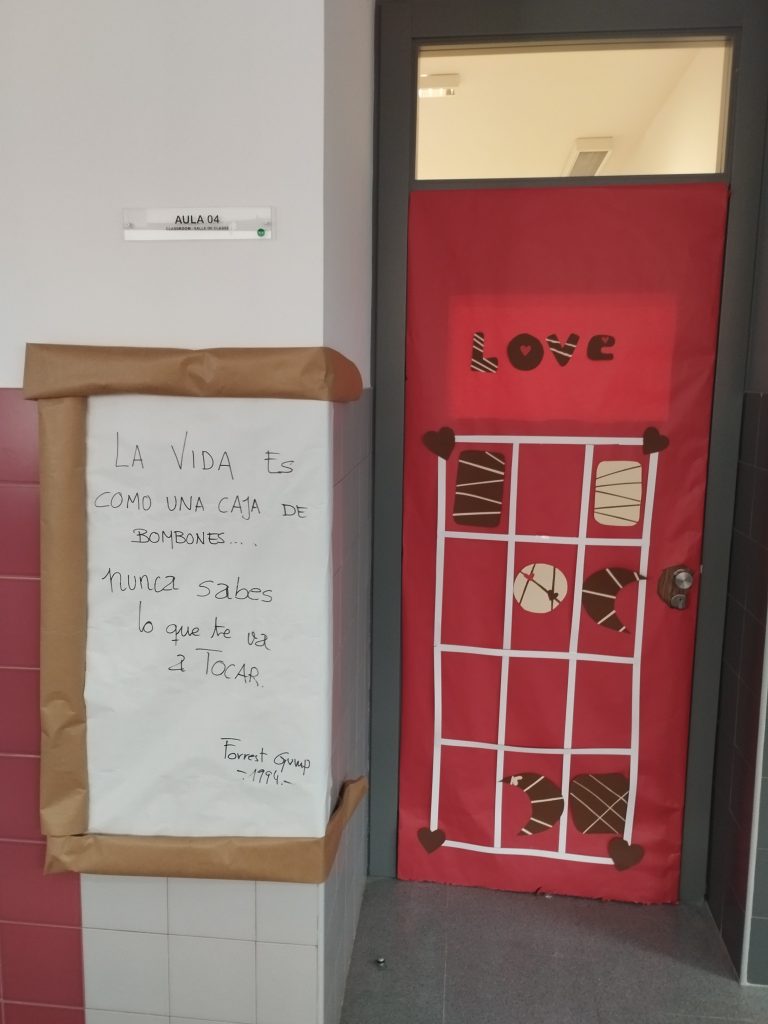 AULA 04
CLASSROOM - SALLE DE CLASSE
LOVE
LA VIDA ES
COMO UNA CAJA DE
BOMBONES....
nunca sabes
lo que te va
a TOCAR.
Forrest Gump
-1994.-